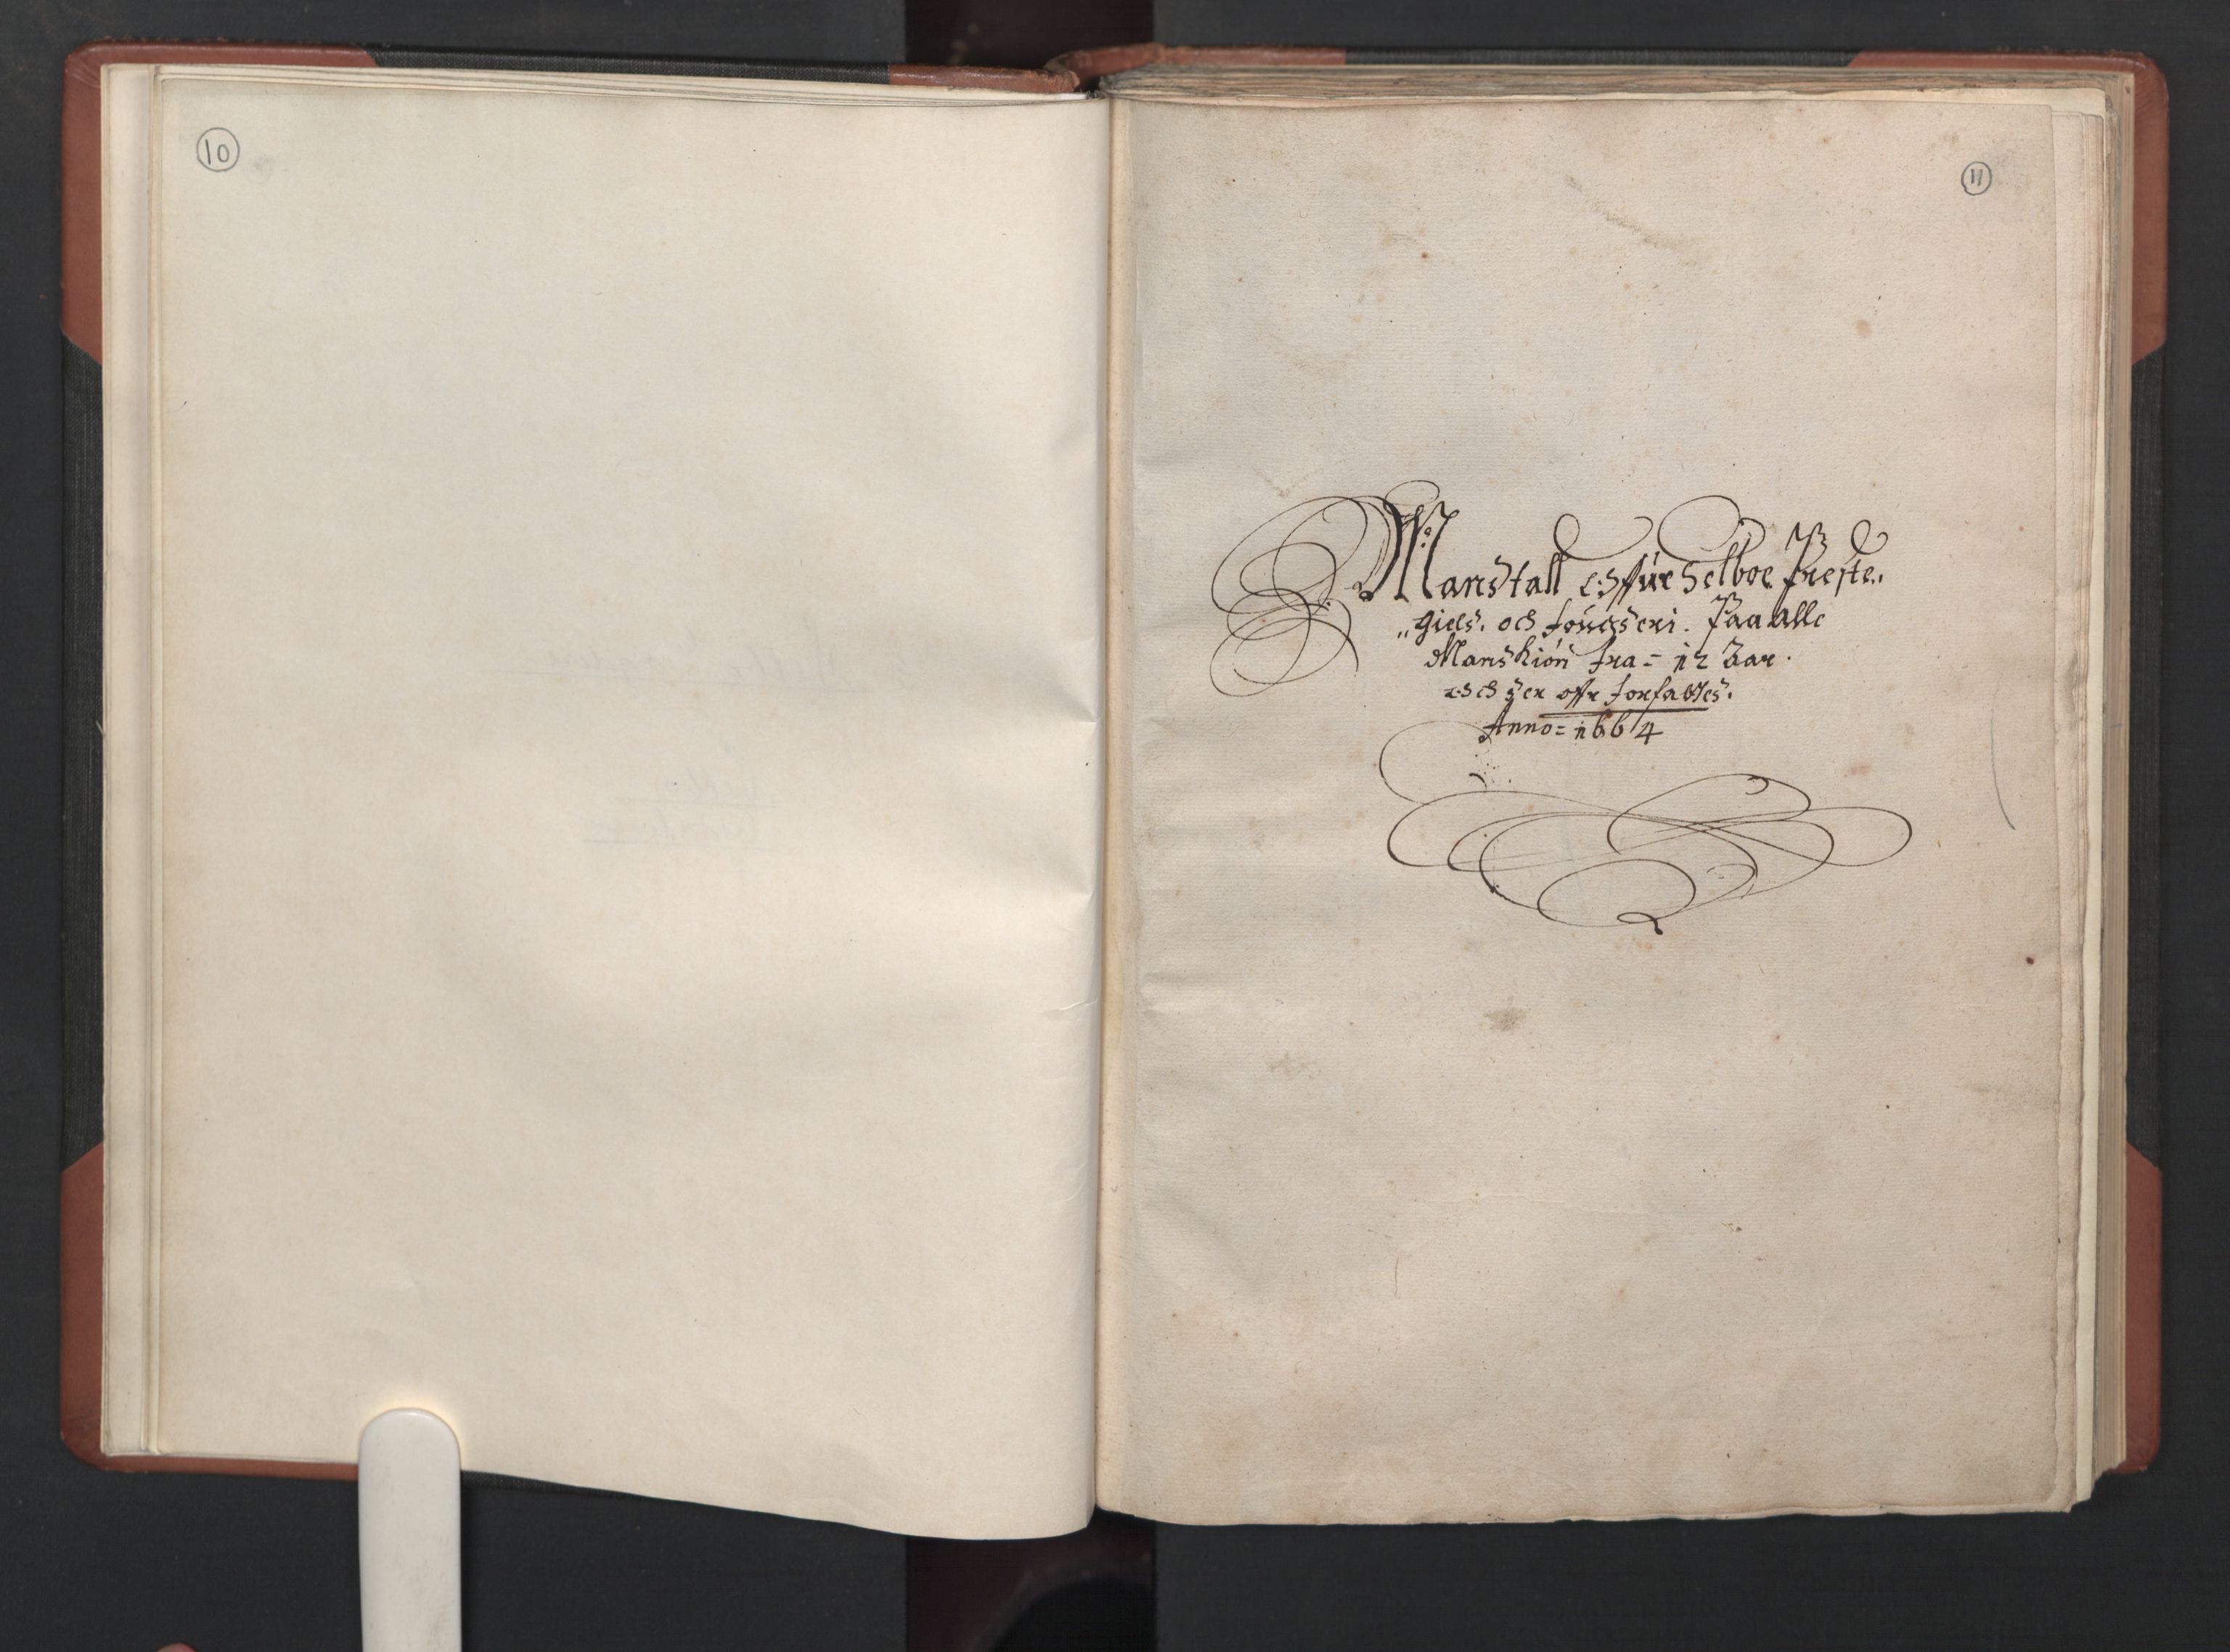 10
11
Manstall offuer Selboe Preste„
„gield. och fougderi. Paa alle
Mandkiön fra = 12 Aar.
och der offr forfattes.
Anno = 1664